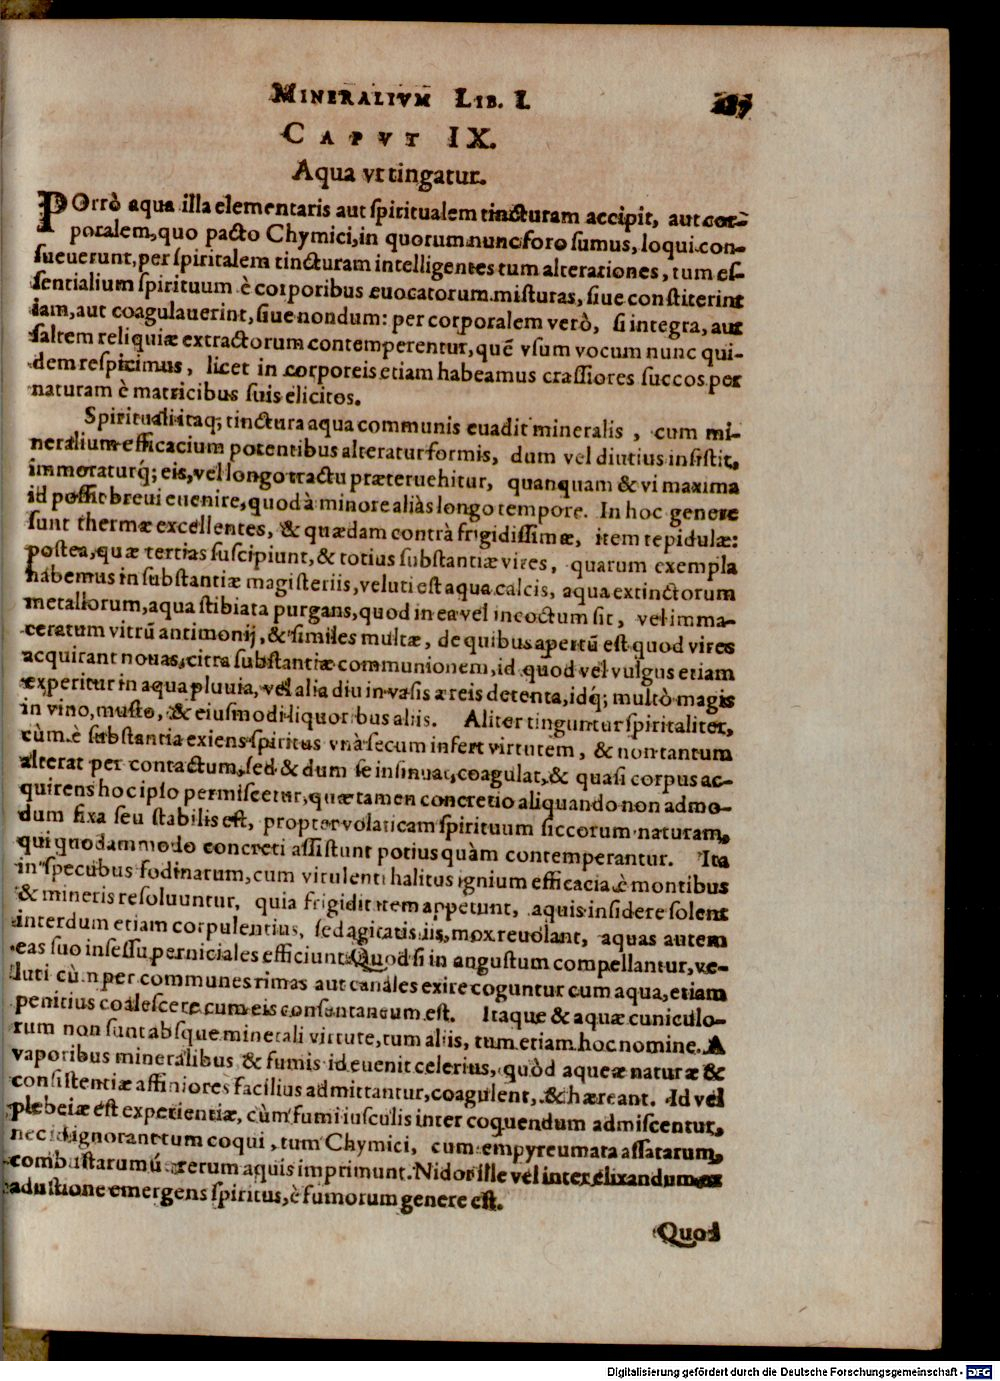 MINERALIVM LIB. I. 187
CAPVT IX.
Aqua vt tingatur.
POrrò aqua illa elementaris aut ſpiritualem tincturam accipit, aut cor-
poralem, quo pacto Chymici, in quorum nunc foro ſumus, loqui con-
ſueuerunt, per ſpiritalem tincturam intelligentes tum alterationes, tum eſ-
ſentialium ſpirituum è corporibus euocatorum miſturas, ſiue conſtiterint
iam, aut coagulauerint, ſiue nondum: per corporalem verò, ſi integra, aut
ſaltem reliquiæ extractorum contemperentur, quẽ vſum vocum nunc qui-
dem reſpicimus, licet in corporeis etiam habeamus craſſiores ſuccos per
naturam è matricibus ſuis elicitos.
Spirituali itaq; tinctura aqua communis euadit mineralis, cum mi-
neralium efficacium potentibus alteratur formis, dum vel diutius inſiſtit,
immoraturq́; eis, vel longo tractu præteruehitur, quanquam & vi maxima
id poſſit breui euenire, quod à minore aliàs longo tempore. In hoc genere
ſunt thermæ excellentes, & quædam contrà frigidiſſimæ, item tepidulæ:
poſtea, quæ tertias ſuſcipiunt, & totius ſubſtantiæ vires, quarum exempla
habemus in ſubſtantiæ magiſteriis, veluti eſt aqua calcis, aqua extinctorum
metallorum, aqua ſtibiata purgans, quod in ea vel incoctum ſit, vel imma-
ceratum vitrũ antimonij, & ſimiles multæ, de quibus apertũ eſt quod vires
acquirant nouas, citra ſubſtantiæ communionem, id quod vel vulgus etiam
experitur in aqua pluuia, vel alia diu in vaſis æreis detenta, idq́; multò magis
in vino, muſto, & eiuſmodi liquoribus aliis. Aliter tinguntur ſpiritaliter,
cùm è ſubſtantia exiens ſpiritus vnà ſecum infert virtutem, & non tantum
alterat per contactum, ſed & dum ſe inſinuat, coagulat, & quaſi corpus ac-
quirens hoc ipſo permiſcetur, quæ tamen concretio aliquando non admo-
dum fixa ſeu ſtabilis eſt, propter volaticam ſpirituum ſiccorum naturam,
qui quodammodo concreti aſſiſtunt potius quàm contemperantur. Ita
in ſpecubus fodinarum, cum virulenti halitus ignium efficacia è montibus
& mineris reſoluuntur, quia frigiditatem appetunt, aquis inſidere ſolent
interdum etiam corpulentius, ſed agitatis iis, mox reuolant, aquas autem
eas ſuo inſeſſu perniciales efficiunt. Quod ſi in anguſtum compellantur, ve-
luti cùm per communes rimas aut canales exire coguntur cum aqua, etiam
penitius coaleſcere cum eis conſentaneum eſt. Itaque & aquæ cuniculo-
rum non ſunt abſque minerali virtute, tum aliis, tum etiam hoc nomine. A
vaporibus mineralibus & fumis id euenit celerius, quòd aqueæ naturæ &
conſiſtentiæ affiniores facilius admittantur, coagulent, & hæreant. Id vel
plebeiæ eſt experientiæ, cùm fumi iuſculis inter coquendum admiſcentur,
nec id ignorant tum coqui, tum Chymici, cum empyreumata aſſatarum,
combuſtarumúe rerum aquis imprimunt. Nidor ille vel inter elixandum ex
aduſtione emergens ſpiritus, è fumorum genere eſt.
Quod
Digitalisierung gefördert durch die Deutsche Forschungsgemeinschaft - DFG